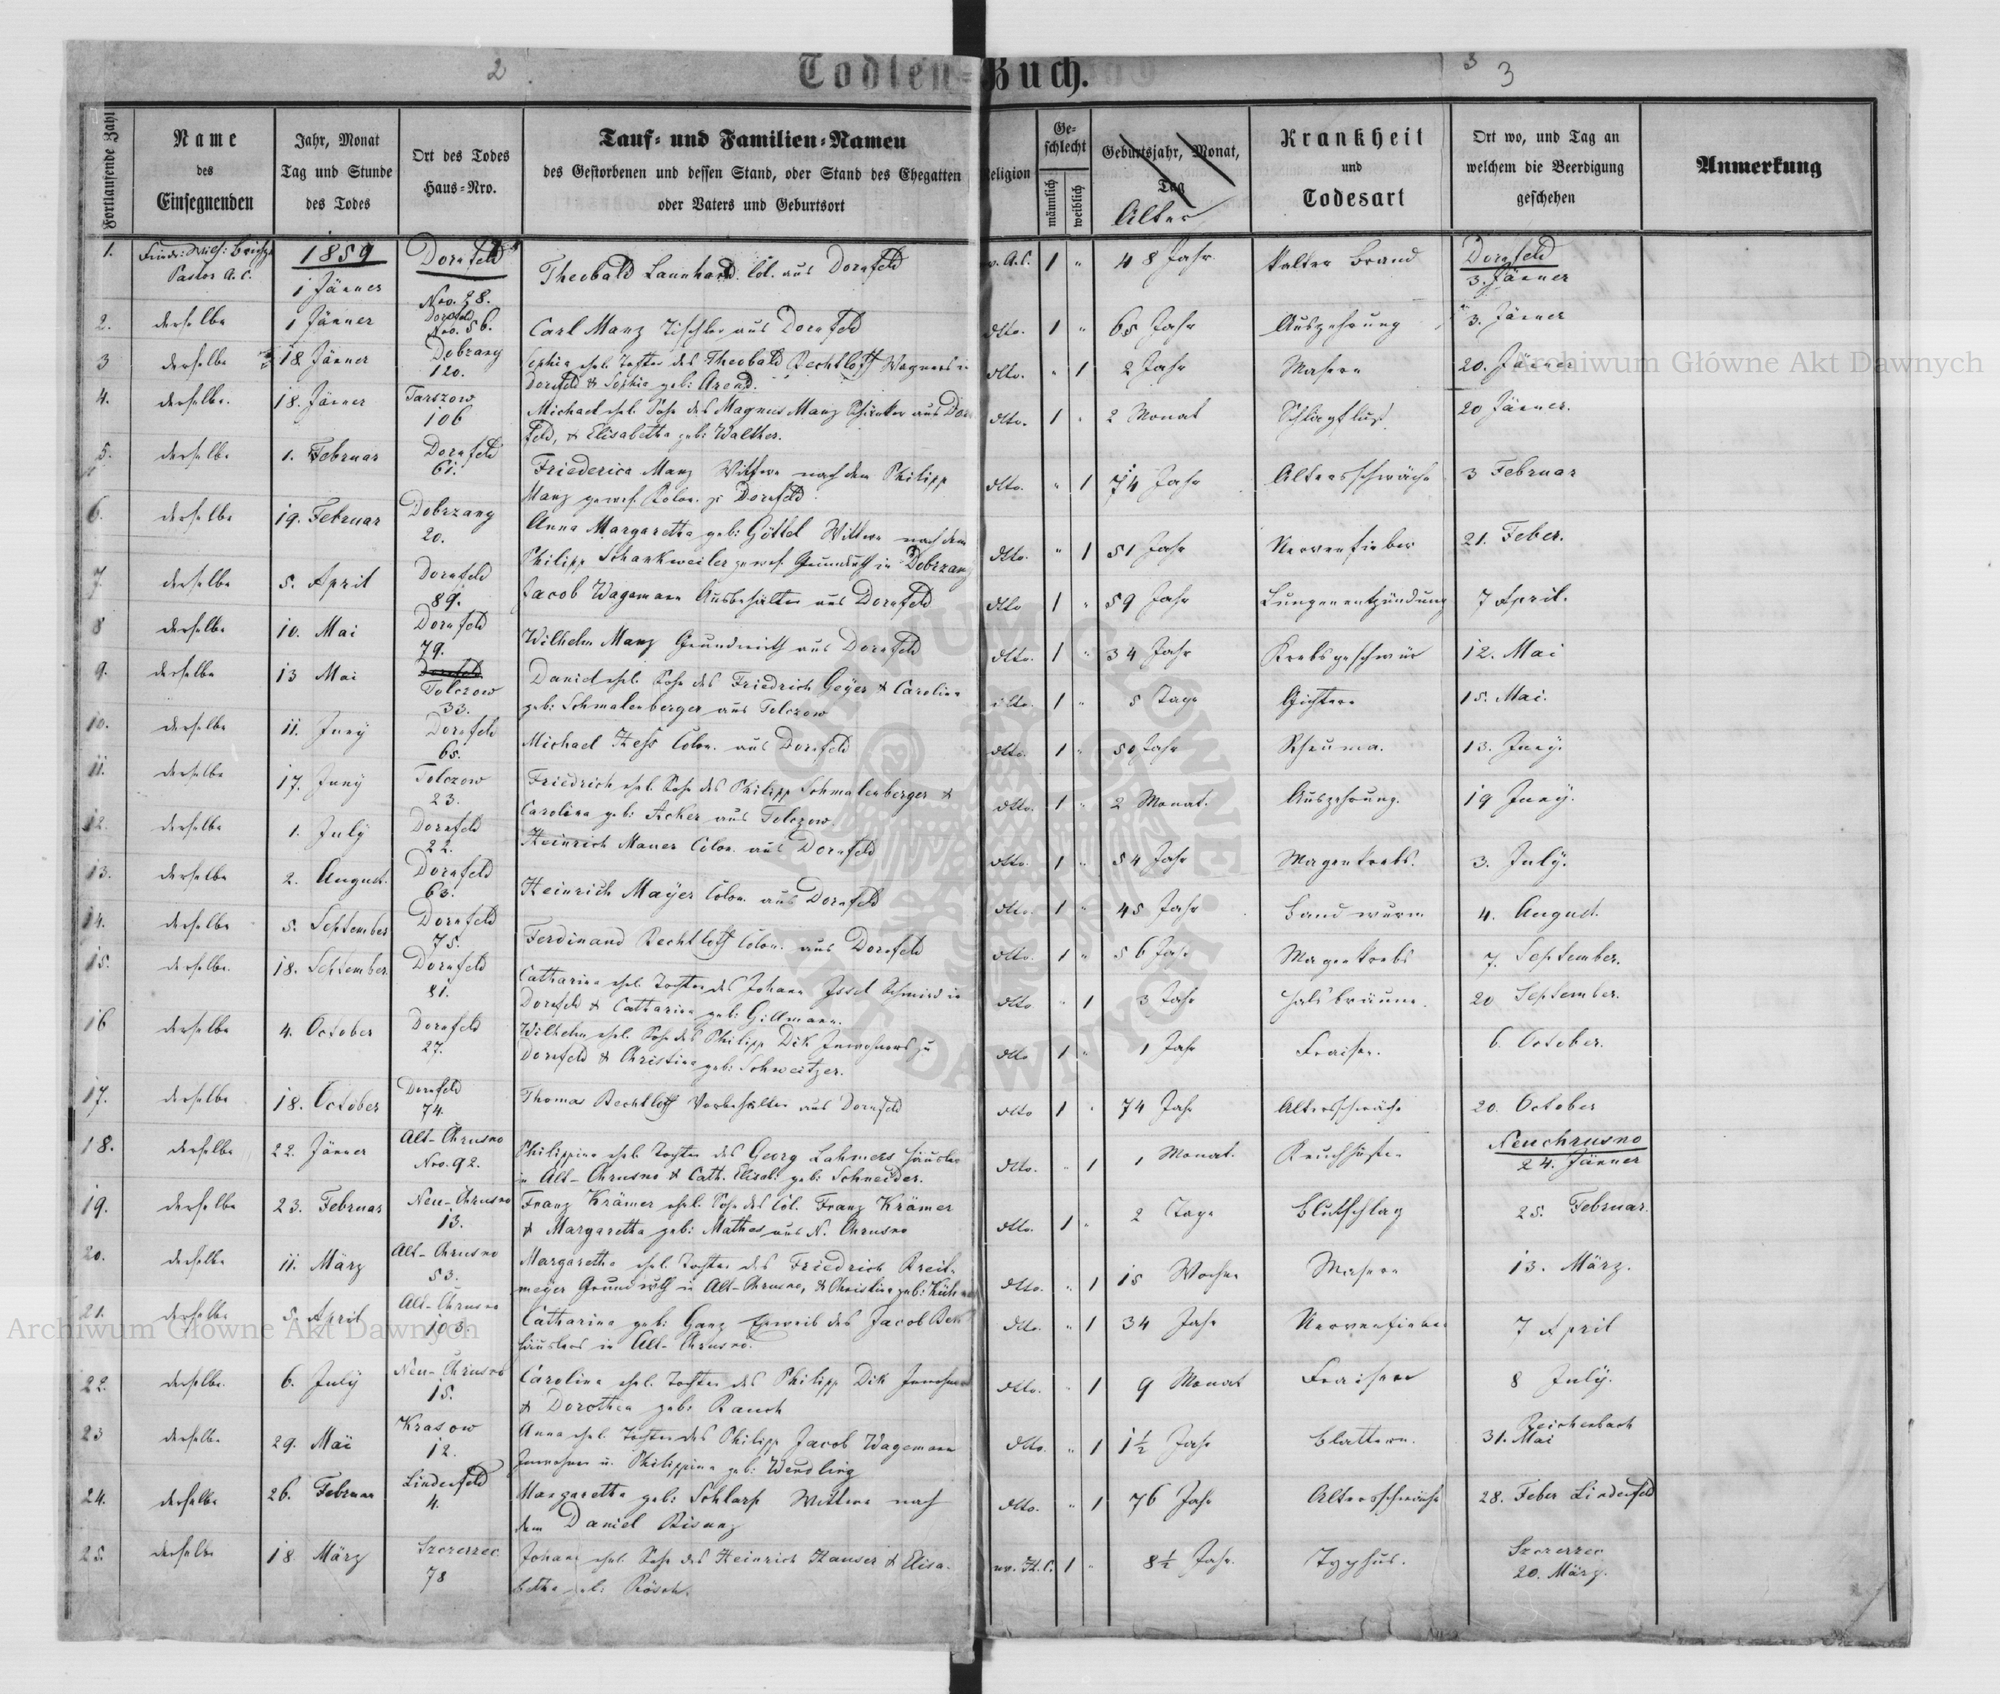 2
Todten-Buch.
3
3
Fortlaufende Zahl
Name
des
Einsegnenden
Jahr, Monat
Tag und Stunde
des Todes
Ort des Todes
Haus-Nro.
Tauf- und Familien-Namen
des Gestorbenen und dessen Stand, oder Stand des Ehegatten
oder Vaters und Geburtsort
Religion
Ge-
schlecht
männlich
weiblich
Geburtsjahr, Monat,
Tag
Alter
Krankheit
und
Todesart
Ort wo, und Tag an
welchem die Beerdigung
geschehen
Anmerkung
1. Pastor A. C. 1859 1 Jänner Dornfeld Nro. 28.
Theobald Launhard. Col. aus Dornfeld
ev. A. C. 1 " 48 Jahr kalter Brand Dornfeld 3. Jänner
2. derselbe 1 Jänner Dornfeld Nro. 56.
Carl Manz Tischler aus Dornfeld
dtto. 1 " 65 Jahr Auszehrung 3. Jänner
3 derselbe 18 Jänner Dobrzany 120.
Sophia ehel. Tochter des Theobald Bechtloff Wagners in
Dornfeld & Sophia geb: Arend.
dtto. " 1 2 Jahr Masern 20. Jänner
4. derselbe. 18. Jänner Tarszow 106
Michael ehel. Sohn des Magnus Manz Schänker aus Dorn
feld, & Elisabetha geb: Walther.
dtto. 1 " 2 Monat Schlagfluß 20 Jänner.
5. derselbe 1. Februar Dornfeld 61.
Friederica Manz Wittwe nach dem Philipp
Manz gewes. Colon. zu Dornfeld.
dtto. " 1 74 Jahr Altersschwäche 3 Februar
6. derselbe 19. Februar Dobrzany 20.
Anna Margaretha geb: Göttel Wittwe nach dem
Philipp Schankweiler gewes. Grundwirth in Dobrzany
dtto. " 1 51 Jahr Nervenfieber 21. Feber.
7. derselbe 5. April Dornfeld 89.
Jacob Wagemann Ausbehälter aus Dornfeld
dtto 1 " 59 Jahr Lungenentzündung 7 April.
8 derselbe 10. Mai Dornfeld 79.
Wilhelm Manz Grundwirth aus Dornfeld
dtto. 1 " 34 Jahr Krebsgeschwür 12. Mai
9. derselbe 13 Mai Dornfeld Tolczow 33.
Daniel ehel. Sohn des Friedrich Geÿer & Carolina
geb: Schmalenberger aus Tolczow
dtto. 1 " 5 Tage Gichtern 15. Mai.
10. derselbe 11. Juny Dornfeld 65.
Michael Hess Colon. aus Dornfeld
dtto. 1 " 50 Jahr Rheuma. 13. Juny.
11. derselbe 17. Juny Tolczow 23.
Friedrich ehel. Sohn des Philipp Schmalenberger &
Carolina geb: Acher aus Tolczow.
dtto. 1 " 2 Monat. Auszehrung. 19 Juny.
12. derselbe 1. July Dornfeld 22.
Heinrich Mauer Colon. aus Dornfeld
dtto. 1 " 54 Jahr Magenkrebs. 3. July.
13. derselbe 2. August. Dornfeld 63.
Heinrich Maÿer Colon. aus Dornfeld
dtto. 1 " 45 Jahr Bandwurm 4. August.
14. derselbe 5. September Dornfeld 75.
Ferdinand Bechtloff Colon. aus Dornfeld
dtto. 1 " 56 Jahr Magenkrebs 7. September.
15. derselbe. 18. September Dornfeld 81.
Catharina ehel. Tochter des Johann Issel Schmied in
Dornfeld & Catharina geb: Gillmann.
dtto " 1 3 Jahr Halsbräune. 20 September.
16 derselbe 4. October Dornfeld 27.
Wilhelm ehel. Sohn des Philipp Dik Inwohners zu
Dornfeld & Christina geb: Schweitzer.
dtto 1 " 1 Jahr Fraisen. 6. October.
17. derselbe 18. October Dornfeld 74.
Thomas Bechtloff Vorbehälter aus Dornfeld
dtto 1 " 74 Jahr Altersschwäche 20. October
18. derselbe 22. Jänner Alt-Chrusno Nro. 92.
Philippina ehel. Tochter des Georg Lahmers Häusler
in Alt-Chrusno & Cath. Elisab: geb: Schneider.
dtto. " 1 1 Monat. Keuchhusten Neuchrusno 24. Jänner
19. derselbe 23. Februar Neu-Chrusno 13.
Franz Krämer ehel. Sohn des Col. Franz Krämer
& Margaretha geb: Mathes aus N. Chrusno
dtto. 1 " 2 Tage Blutschlag 25. Februar.
20. derselbe 11. März Alt-Chrusno 53.
Margaretha ehel. Tochter des Friedrich Breit-
meyer Grundwirth in Alt-Chrusno, & Christina geb:
dtto. " 1 15 Wochen Masern 13. März.
21. derselbe 5. April Alt-Chrusno 103.
Catharina geb: Ganz Eheweib des Jacob
Häuslers in Alt-Chrusno.
dtto. " 1 34 Jahr Nervenfieber 7 April
22. derselbe. 6. July Neu-Chrusno 15.
Carolina ehel. Tochter des Philipp Dik Inwohner
& Dorothea geb: Rauch
dtto. " 1 9 Monat Fraisen 8 July.
23 derselbe 29. Mai Krasow 12.
Anna ehel. Tochter des Philipp Jacob Wagemann
Inwohner u. Philippina geb: Wendling
dtto. " 1 1½ Jahr Blattern. Reichenbach 31. Mai
24. derselbe 26. Februar Lindenfeld 4.
Margaretha geb: Schlarp Wittwe nach
dem Daniel Bisanz
dtto. " 1 76 Jahr Altersschwäche 28. Feber Lindenfeld
25. derselbe 18 März Szczerzec 78
Johann ehel. Sohn des Heinrich Hauser & Elisa-
betha geb: Rösch.
ev. H. C. 1 " 8½ Jahr. Typhus. Szczerzec 20. März.
Archiwum Główne Akt Dawnych
Archiwum Główne Akt Dawnych